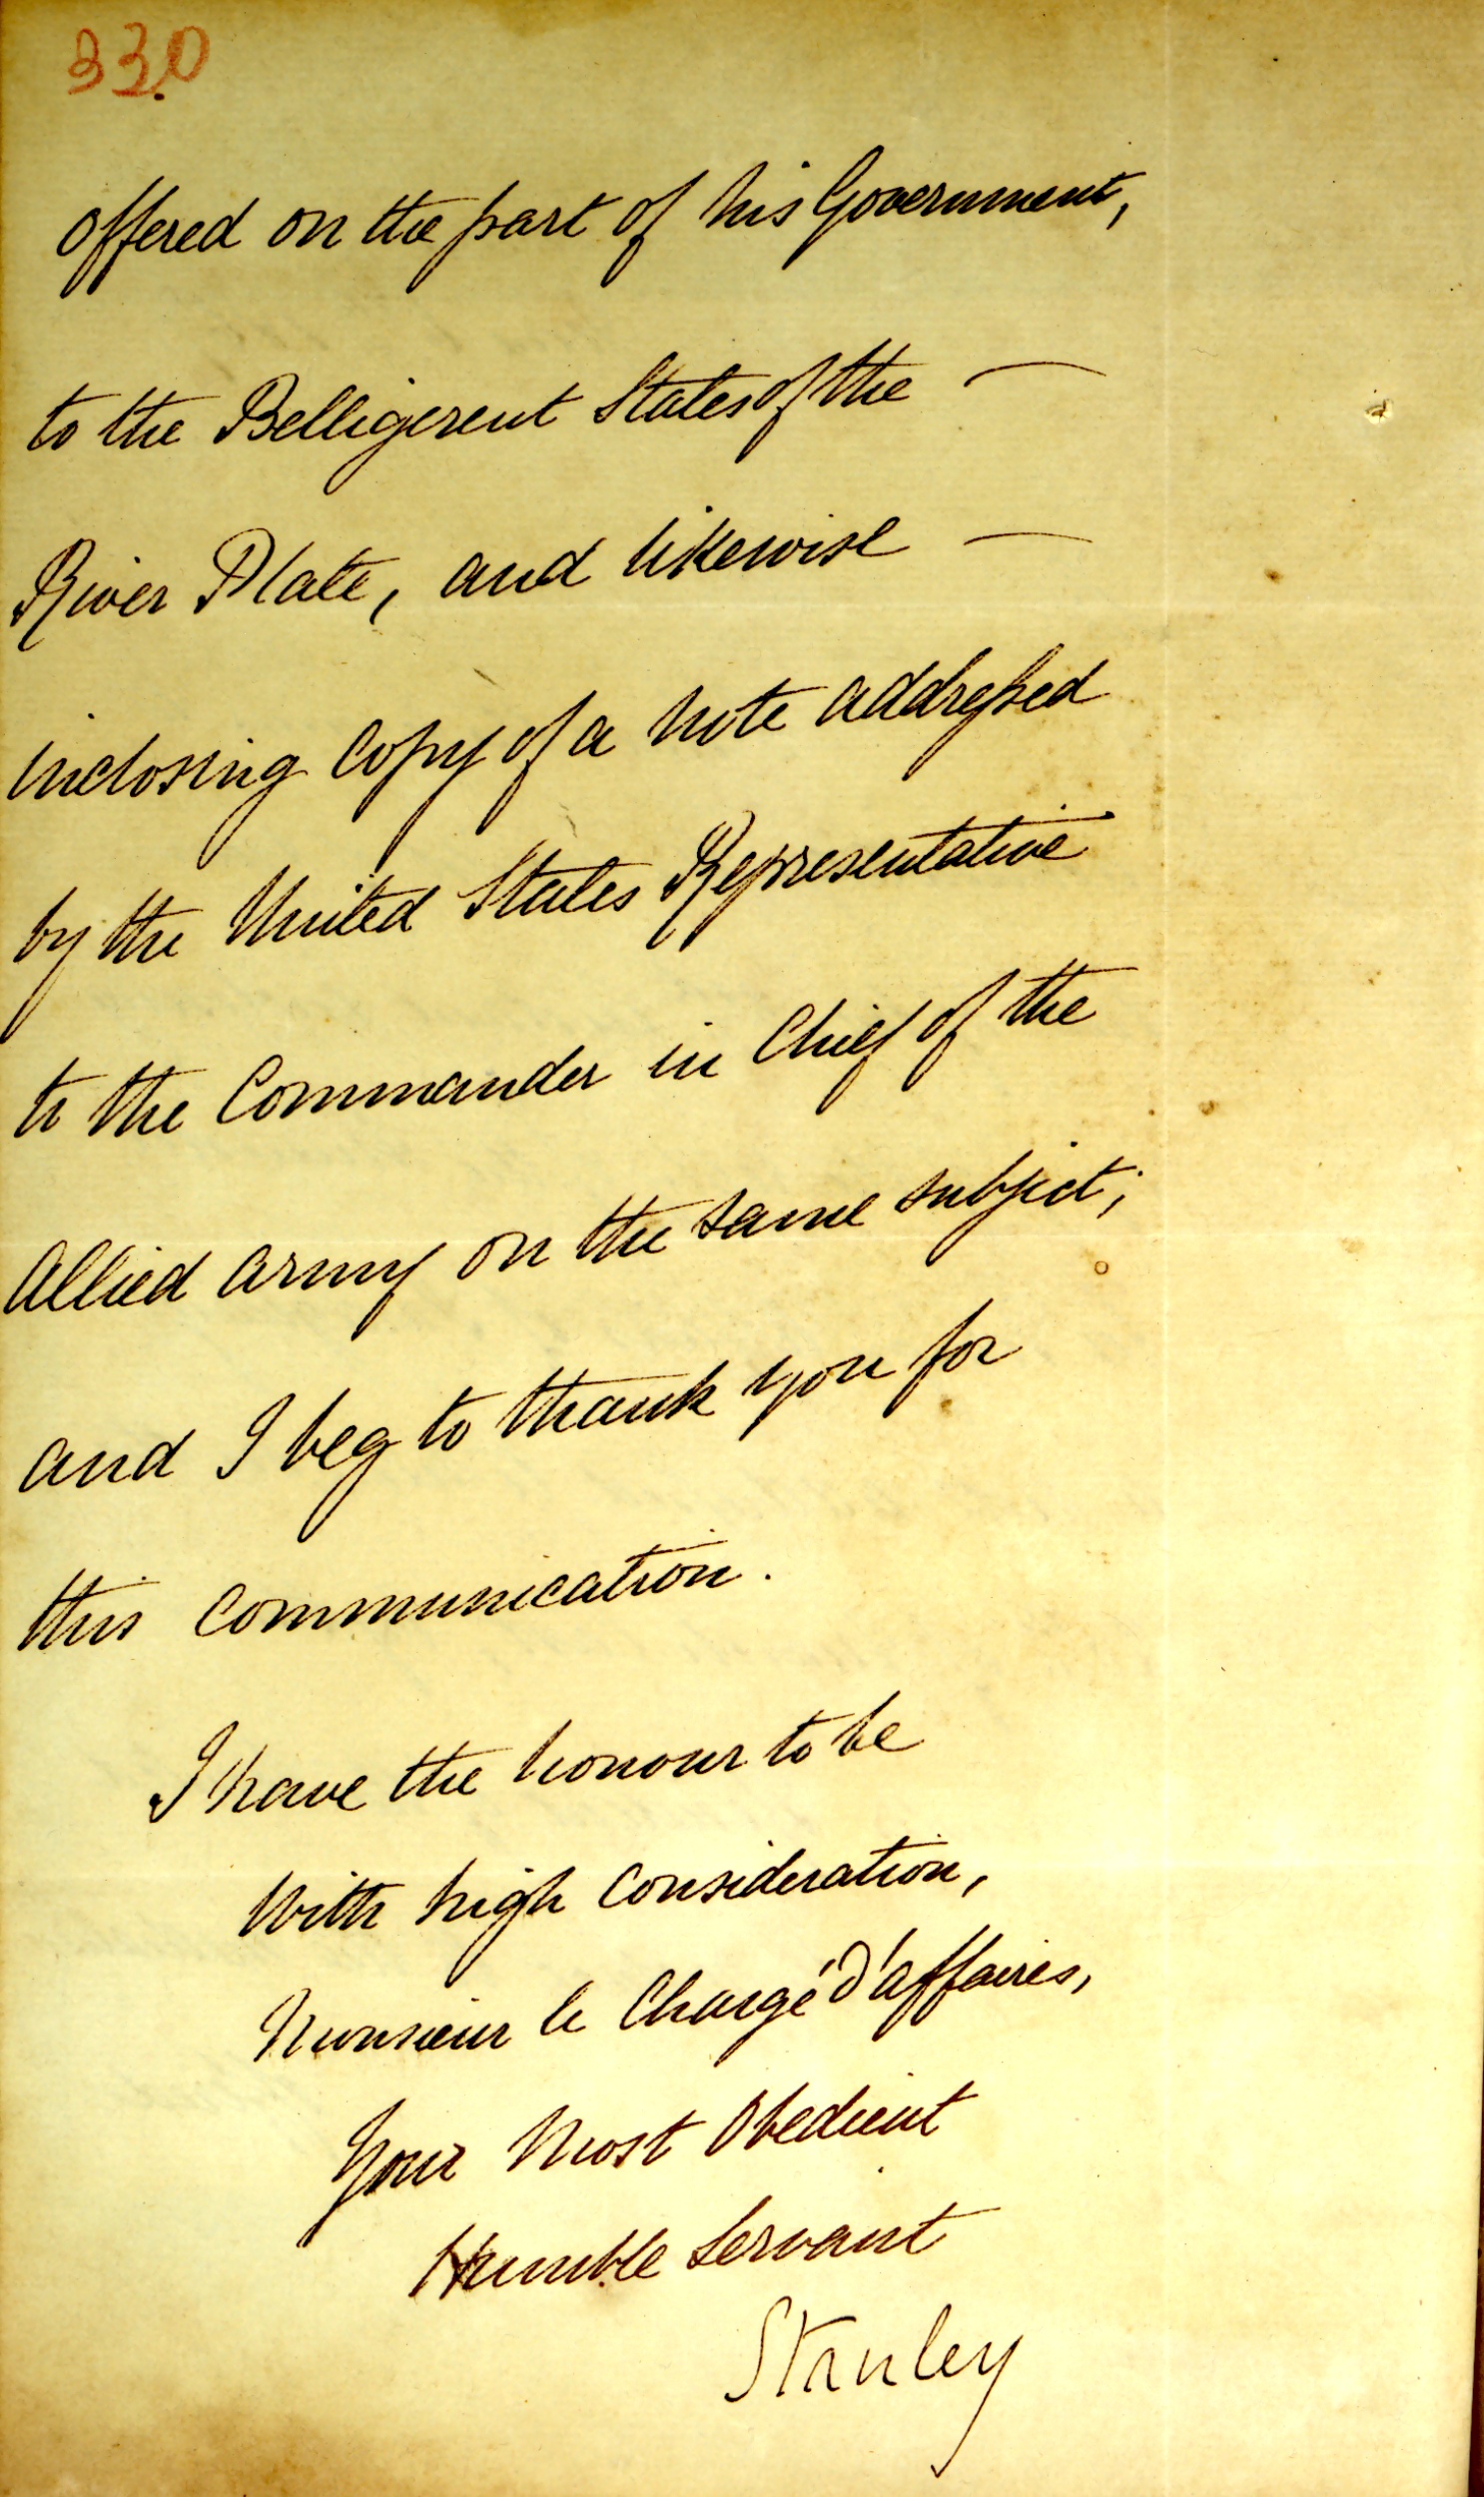 330
offered on the part of his Government,
to the Belligerent States of the —
River Plate, and likewise —
inclosing copy of a note addressed
by the United States Representative
to the Commander in Chief of the
Allied Army on the same subject;
and I beg to thank you for
this communication.
I have the honour to be
With high consideration,
Monsieur le Chargé d'affaires,
Your Most Obedient
Humble Servant
Stanley